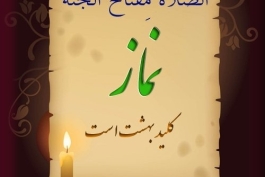 الصلاة مِفتاح الجنة
نماز
کلید بهشت است